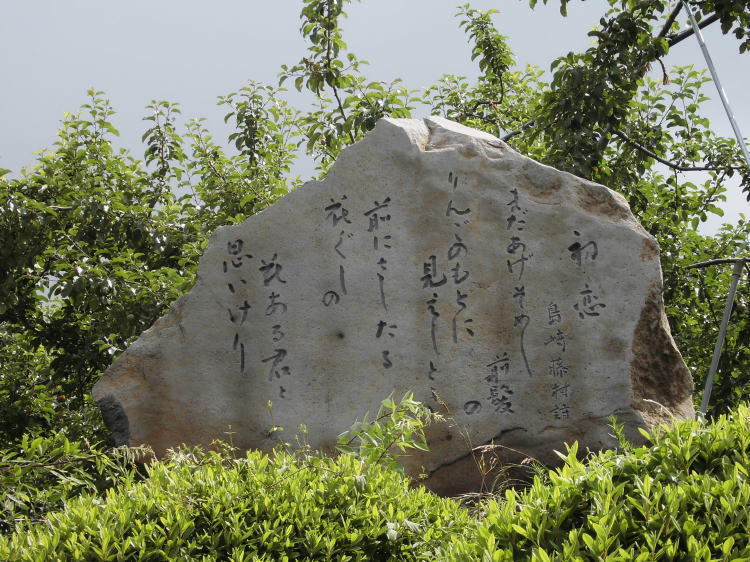 初恋
島崎藤村詩
まだあげそめし
前髪の
りんごのもとに
見えしとき
前にさしたる
花ぐしの
花ある君と
思いけり